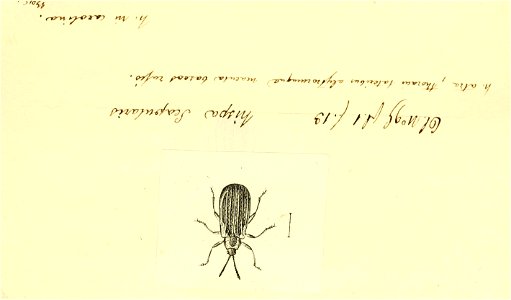 Col N° 95 pl. 1 f. 13 hispa Scapularis
h. atra, thoracis lateribus elytrorumque macula baseos rufis.
h. in carolina.